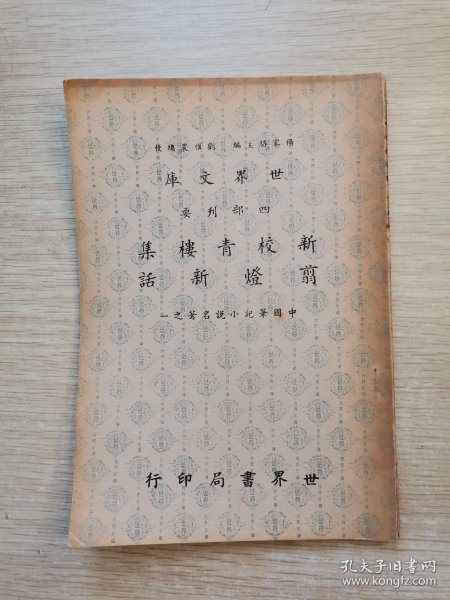 楊家駱主編 劉雅農總校
世界文庫
四部刊要
新校青樓集
剪燈新話
中國筆記小說名著之一
世界書局印行
孔夫子旧书网
www.kongfz.com